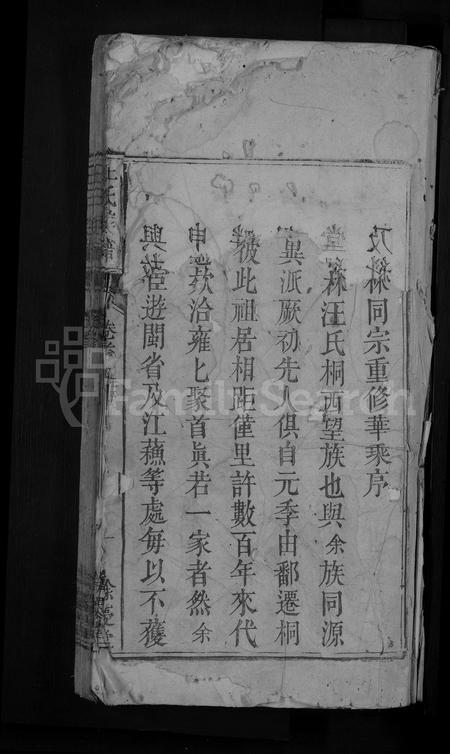 及林同宗重修華乘序
林汪氏桐西望族也與余族同源
異派厥初先人俱自元季由鄱遷桐
彼此祖居相距僅里許數百年來代
申歀洽雍匕聚首眞若一家者然余
與遊閩省及江蘓等處每以不獲
氏宗譜
卷
餘慶堂
FamilySearch